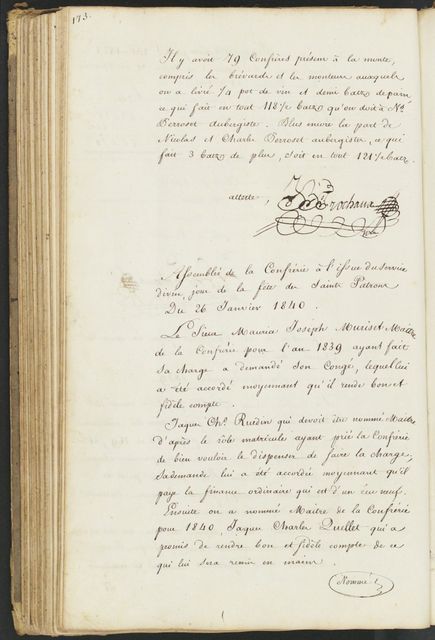 173.
Il y avoit 79 Confrères présent à la monte,
compris les brévards et les monteur auxquels
on a livré 1/4 pot de vin et demi batz de pain
ce qui fait en tout 118 1/2 batz qu'on doit à Ns
Perroset aubergiste. Plus encore la part de
Nicolas et Charles Perroset aubergiste, ce qui
fait 3 batz de plus, soit en tout 121 1/2 batz.
atteste,
Frochaux
Assemblée de la Confrérie à l'issue du service
divin, jour de la fête des Saints Patrons
Du 26 Janvier 1840
Le Sieur Maurice Joseph Muriset Maître
de la Confrérie pour l'an 1839 ayant fait
sa charge a demandé son Congé, lequel lui
a été accordé moyennant qu'il rende bon et
fidèle compte.
Jaques Chs. Ruedin qui devoit être nommé Maître
d'après le rôle matricule ayant prié la Confrérie
de bien vouloir le dispenser de faire la charge,
sa demande lui a été accordée moyennant qu'il
paye la finance ordinaire qui est d'un écu neuf.
Ensuite on a nommé Maître de la Confrérie
pour 1840, Jaques Charles Quellet qui a
promis de rendre bon et fidèle compte de ce
qui lui sera remis en mains.
Nommé